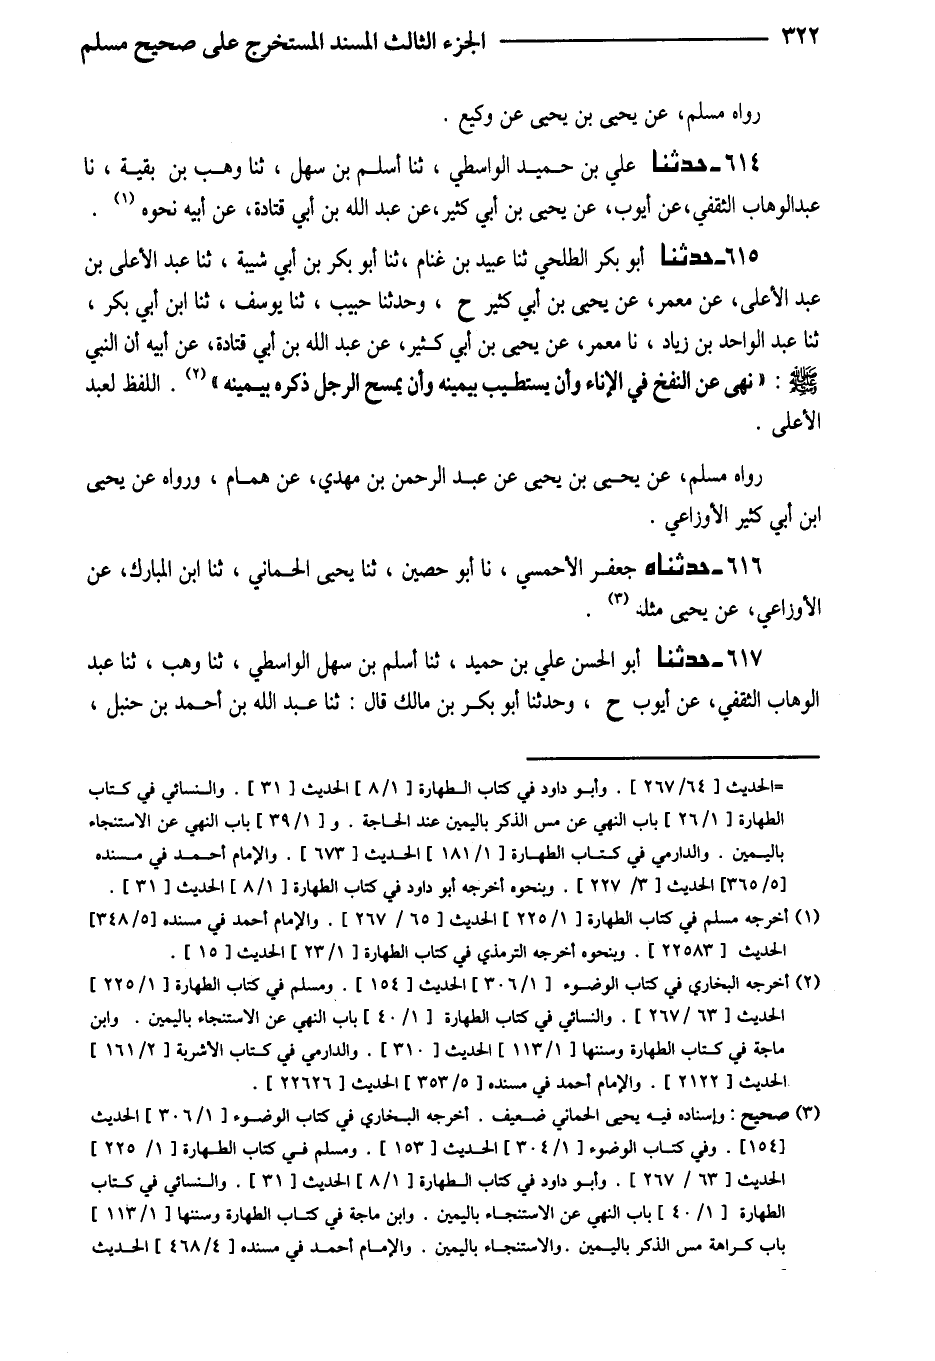 ٣٢٢ ــــــــــــــ الجزء الثالث المسند المستخرج على صحيح مسلم
رواه مسلم، عن يحيى بن يحيى عن وكيع .
٦١٤ـ حدثنا علي بن حميد الواسطي ، ثنا أسلم بن سهل ، ثنا وهب بن بقية ، نا
عبدالوهاب الثقفي،عن أيوب، عن يحيى بن أبي كثير،عن عبد الله بن أبي قتادة، عن أبيه نحوه (١) .
٦١٥ـ حدثنا أبو بكر الطلحي ثنا عبيد بن غنام ،ثنا أبو بكر بن أبي شيبة ، ثنا عبد الأعلى بن
عبد الأعلى، عن معمر، عن يحيى بن أبي كثير ح ، وحدثنا حبيب ، ثنا يوسف ، ثنا ابن أبي بكر ،
ثنا عبد الواحد بن زياد ، نا معمر، عن يحيى بن أبي كثير، عن عبد الله بن أبي قتادة، عن أبيه أن النبي
ﷺ : « نهى عن النفخ في الإناء وأن يستطيب بيمينه وأن يمسح الرجل ذكره بيمينه » (٢) . اللفظ لعبد
الأعلى .
رواه مسلم، عن يحيى بن يحيى عن عبد الرحمن بن مهدي، عن همام ، ورواه عن يحيى
ابن أبي كثير الأوزاعي .
٦١٦ـ حدثناه جعفر الأحمسي ، نا أبو حصين ، ثنا يحيى الحماني ، ثنا ابن المبارك، عن
الأوزاعي، عن يحيى مثله (٣) .
٦١٧ـ حدثنا أبو الحسن علي بن حميد ، ثنا أسلم بن سهل الواسطي ، ثنا وهب ، ثنا عبد
الوهاب الثقفي، عن أيوب ح ، وحدثنا أبو بكر بن مالك قال : ثنا عبد الله بن أحمد بن حنبل ،
=الحديث [ ٢٦٧/٦٤ ] . وأبو داود في كتاب الطهارة [ ٨/١ ] الحديث [ ٣١ ] . والنسائي في كتاب
الطهارة [ ٢٦/١ ] باب النهي عن مس الذكر باليمين عند الحاجة . و [ ٣٩/١ ] باب النهي عن الاستنجاء
باليمين . والدارمي في كتاب الطهارة [ ١٨١/١ ] الحديث [ ٦٧٣ ] . والإمام أحمد في مسنده
[٣٦٥/٥] الحديث [ ٣/ ٢٢٧ ] . وبنحوه أخرجه أبو داود في كتاب الطهارة [ ٨/١ ] الحديث [ ٣١ ] .
(١) أخرجه مسلم في كتاب الطهارة [ ٢٢٥/١ ] الحديث [ ٦٥ / ٢٦٧ ] . والإمام أحمد في مسنده [٣٤٨/٥]
الحديث [ ٢٢٥٨٣ ] . وبنحوه أخرجه الترمذي في كتاب الطهارة [ ٢٣/١ ] الحديث [ ١٥ ] .
(٢) أخرجه البخاري في كتاب الوضوء [ ٣٠٦/١ ] الحديث [ ١٥٤ ] . ومسلم في كتاب الطهارة [ ٢٢٥/١ ]
الحديث [ ٦٣ /٢٦٧ ] . والنسائي في كتاب الطهارة [ ٤٠/١ ] باب النهي عن الاستنجاء باليمين . وابن
ماجة في كتاب الطهارة وسننها [ ١١٣/١ ] الحديث [ ٣١٠ ] . والدارمي في كتاب الأشربة [ ١٦١/٢ ]
الحديث [ ٢١٢٢ ] . والإمام أحمد في مسنده [ ٣٥٣/٥ ] الحديث [ ٢٢٦٢٦ ] .
(٣) صحيح : وإسناده فيه يحيى الحماني ضعيف . أخرجه البخاري في كتاب الوضوء [ ٣٠٦/١ ] الحديث
[١٥٤] . وفي كتاب الوضوء [ ٣٠٤/١ ] الحديث [ ١٥٣ ] . ومسلم في كتاب الطهارة [ ١/ ٢٢٥ ]
الحديث [ ٦٣ / ٢٦٧ ] . وأبو داود في كتاب الطهارة [ ٨/١ ] الحديث [ ٣١ ] . والنسائي في كتاب
الطهارة [ ٤٠/١ ] باب النهي عن الاستنجاء باليمين . وابن ماجة في كتاب الطهارة وسننها [ ١١٣/١ ]
باب كراهة مس الذكر باليمين .والاستنجاء باليمين . والإمام أحمد في مسنده [ ٤٦٨/٤ ] الحديث